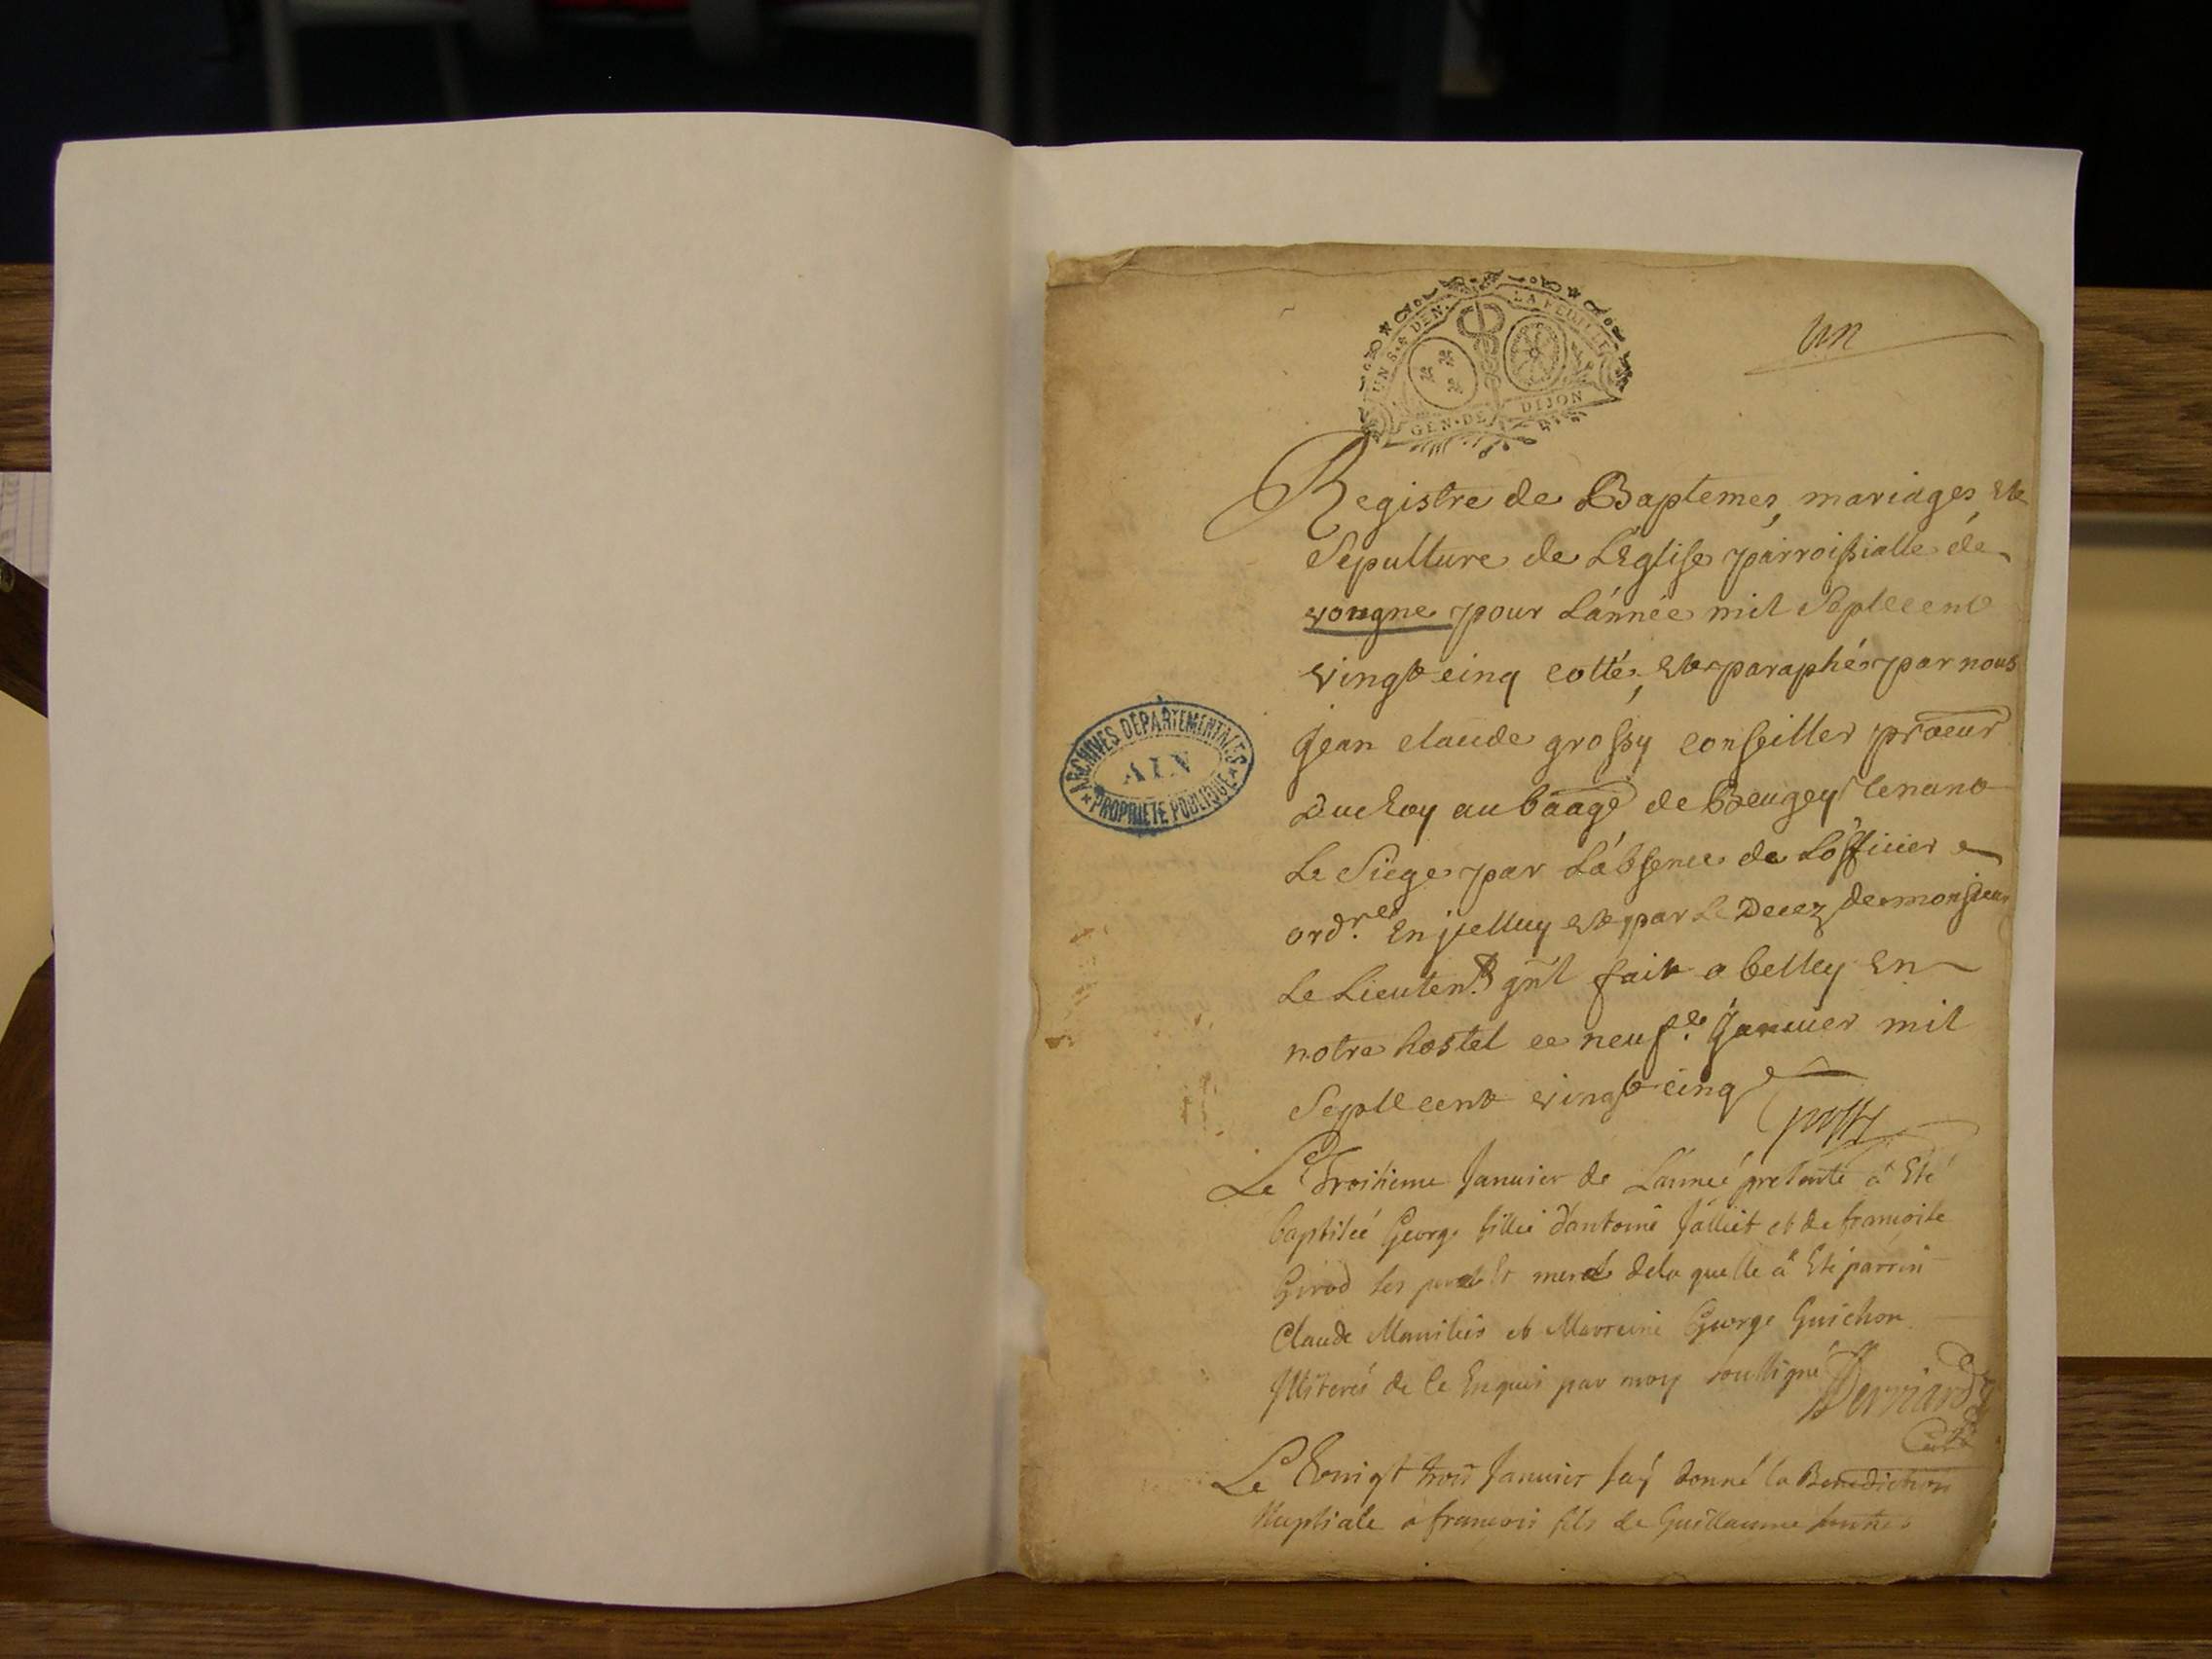 UN S. 4 DEN. LA FEUILLE
GEN. DE DIJON
un
Registre de Baptemes, mariages, et
Sepulture de LEglise parroissialle de
vongne pour L'année mil Sept cent
vingt cinq cotté, et paraphé par nous
jean claude grossy conseiller procur
Du Roy au baage de beugey tenant
Le Siege par L'absence de L'officier
ordre. En jcelluy et par Le Decez de monsieur
Le Lieutent gnl fait a belley En
notre hostel ce neufe. Janvier mil
Sept cent vingt cinq
Grossy
Le Troisieme Janvier de L'année presente a Eté
baptisée George fillie d'antoine Jalliet et de francoise
Girod ses pere Et mere de la quelle a Eté parrin
Claude et Marreine George Guichon
Illiterés de ce Enquis par moy soussigné
Curé
Le Vingt trois Janvier jay donné la Benediction
Nuptiale a francois fils de Guillaume
ARCHIVES DÉPARTEMENTALES
AIN
PROPRIÉTÉ PUBLIQUE